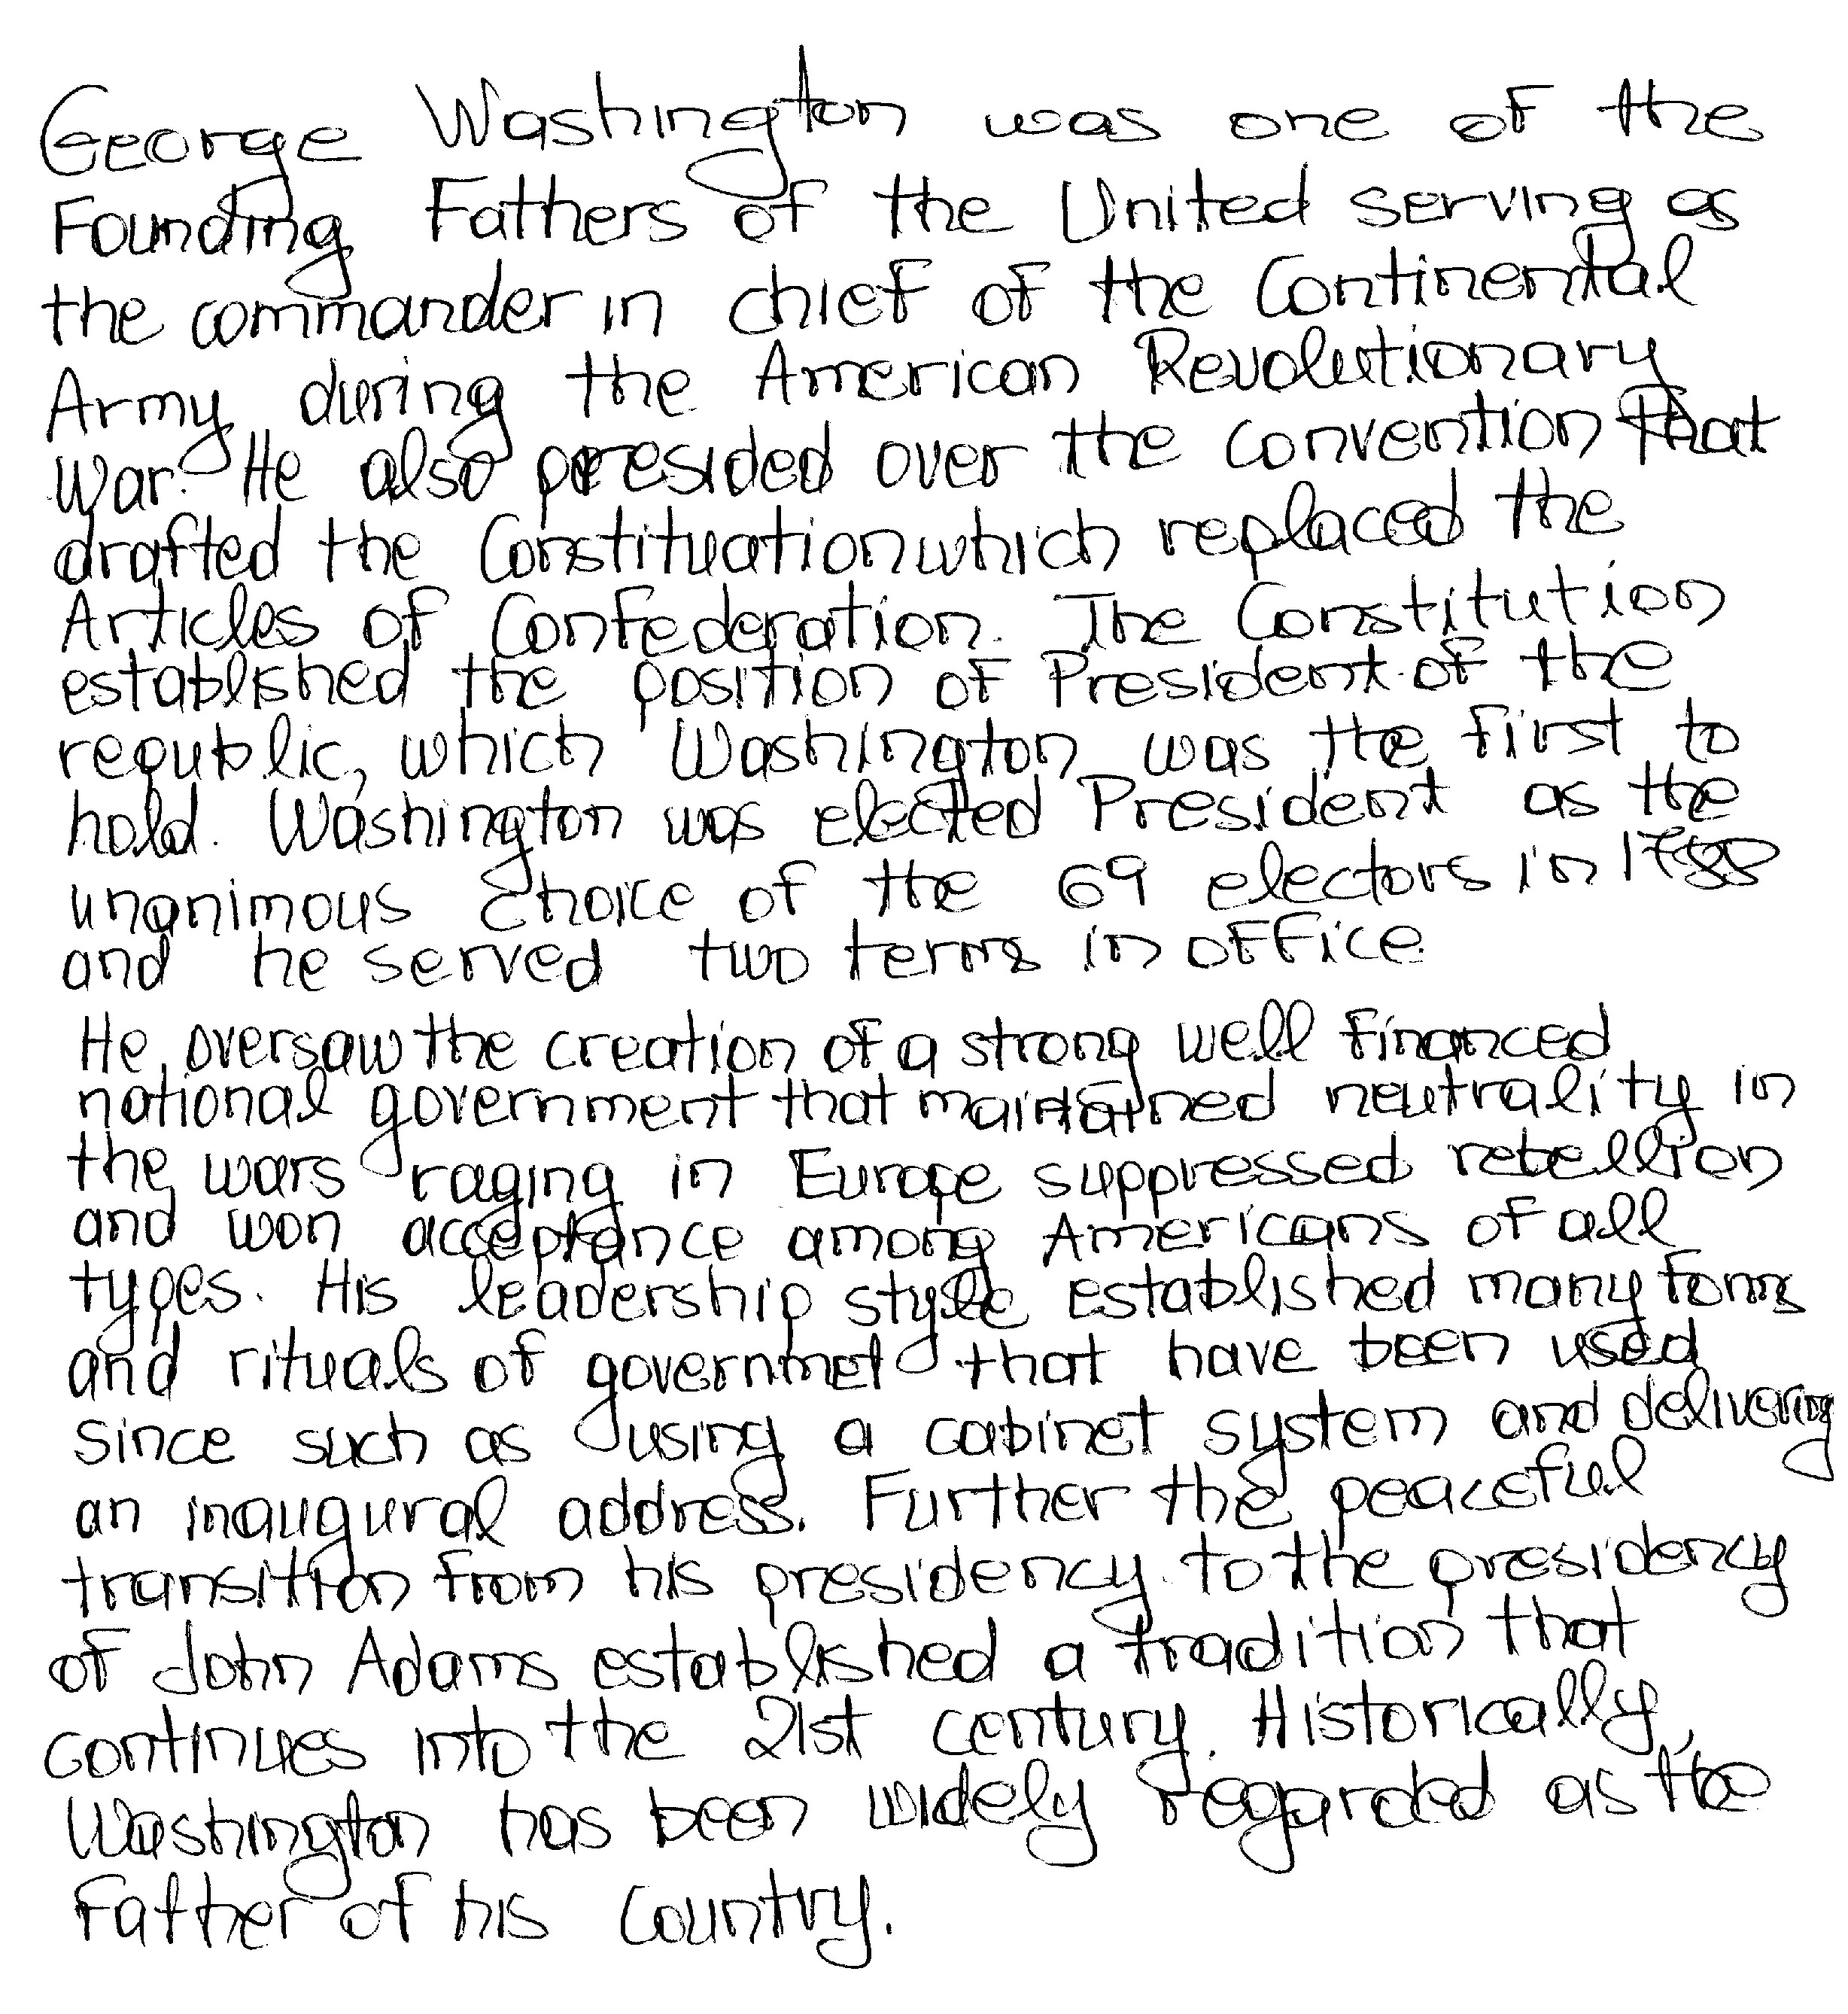 George Washington was one of the
Founding Fathers of the United serving as
the commander in chief of the Continental
Army during the American Revolutionary
war. He also presided over the convention that
drafted the Constituation which replaced the
Articles of Confederation. The Constitution
established the position of President of the
republic, which Washington was the first to
hold. Washington was elected President as the
unanimous choice of the 69 electors in 1788
and he served two terms in office.
He oversaw the creation of a strong well financed
national government that maintained neutrality in
the wars raging in Europe suppressed rebellion
and won acceptance among Americans of all
types. His leadership style established many forms
and rituals of governmet that have been used
since such as using a cabinet system and delivering
an inaugural address. Further the peaceful
transition from his presidency to the presidency
of John Adams established a tradition that
continues into the 21st century. Historically,
Washington has been widely regarded as the
Father of his country.